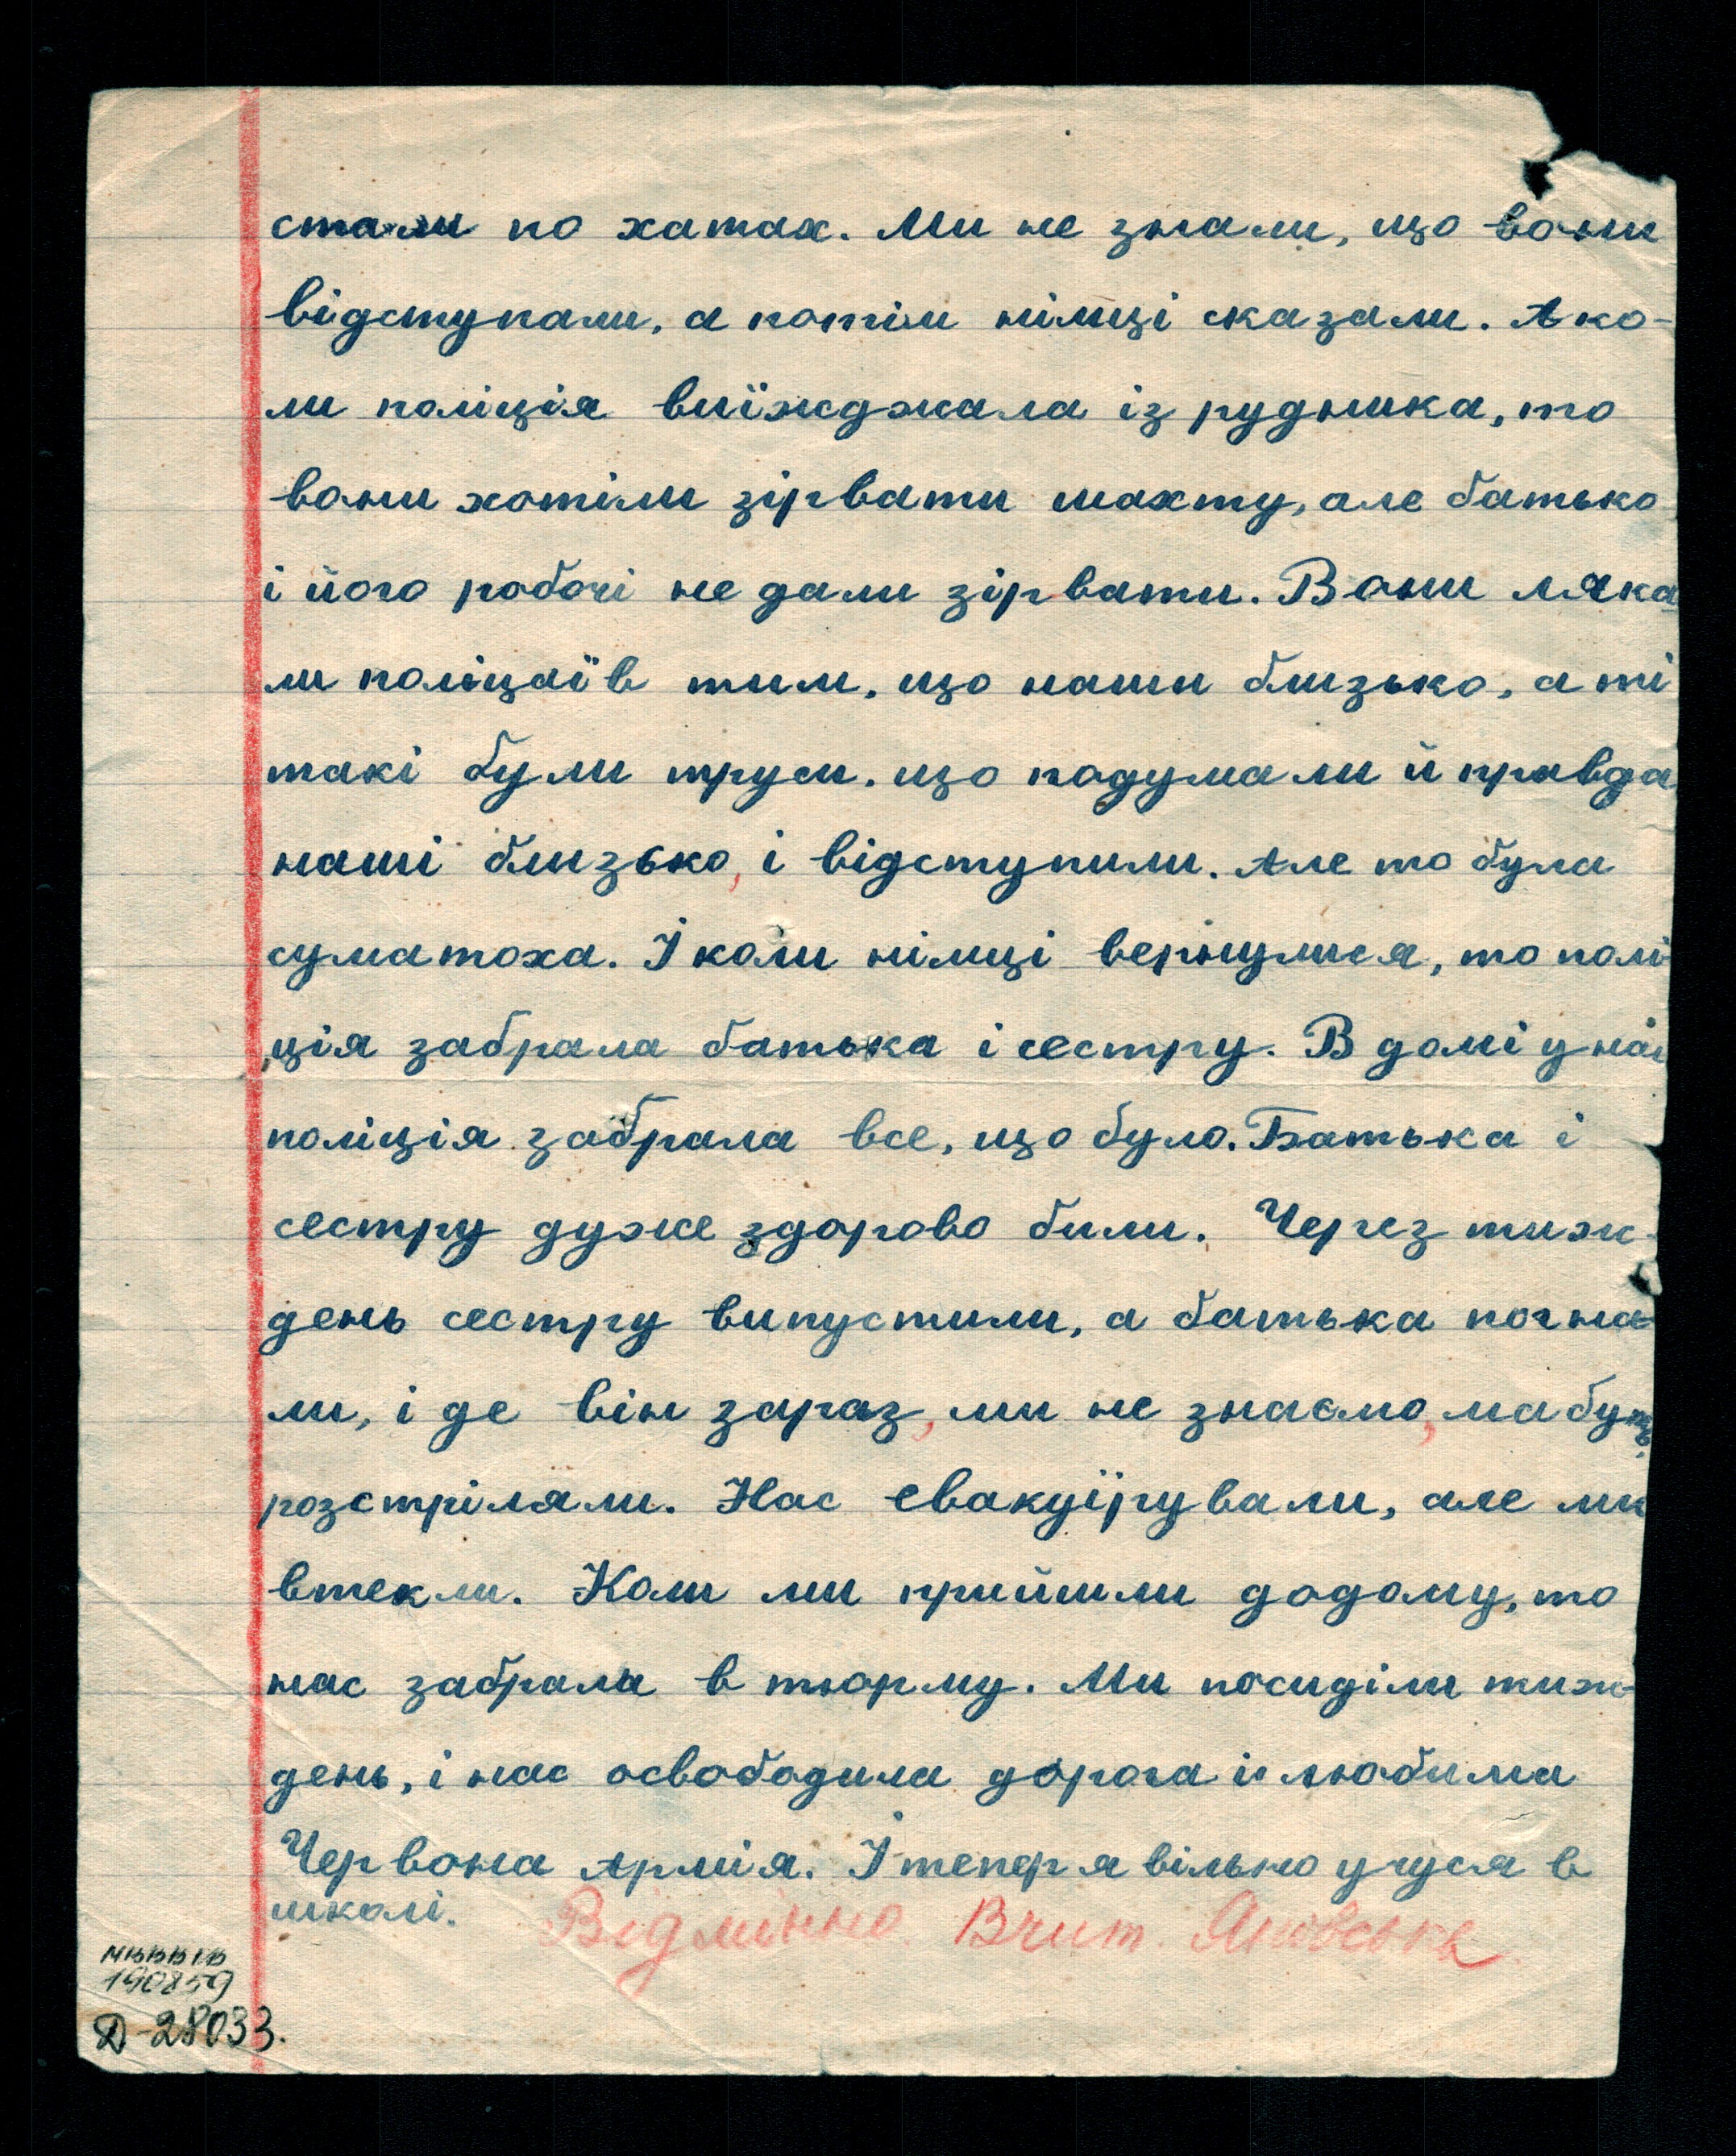 стали по хатах. Ми не знали, що вони
відступали, а потім німці сказали. А ко-
ли поліція виїжджала із рудника, то
вони хотіли зірвати шахту, але батько
і його робочі не дали зірвати. Вони ляка-
ли поліцаїв тим, що наши близько, а ті
такі були труси, що подумали й правда
наші близько, і відступили. Але то була
суматоха. І коли німці вернулися, то полі-
ція забрала батька і сестру. В домі у нас
поліція забрала все, що було. Батька і
сестру дуже здорово били. Через тиж-
день сестру випустили, а батька погна-
ли, і де він зараз, ми не знаємо, мабуть,
розстріляли. Нас евакуїрували, але ми
втекли. Коли ми прийшли додому, то
нас забрали в тюрму. Ми посиділи тиж-
день, і нас освободила дорога й любима
Червона Армія. І тепер я вільно учуся в
школі.
Відмінно Вчит.
190859
Д-28033.